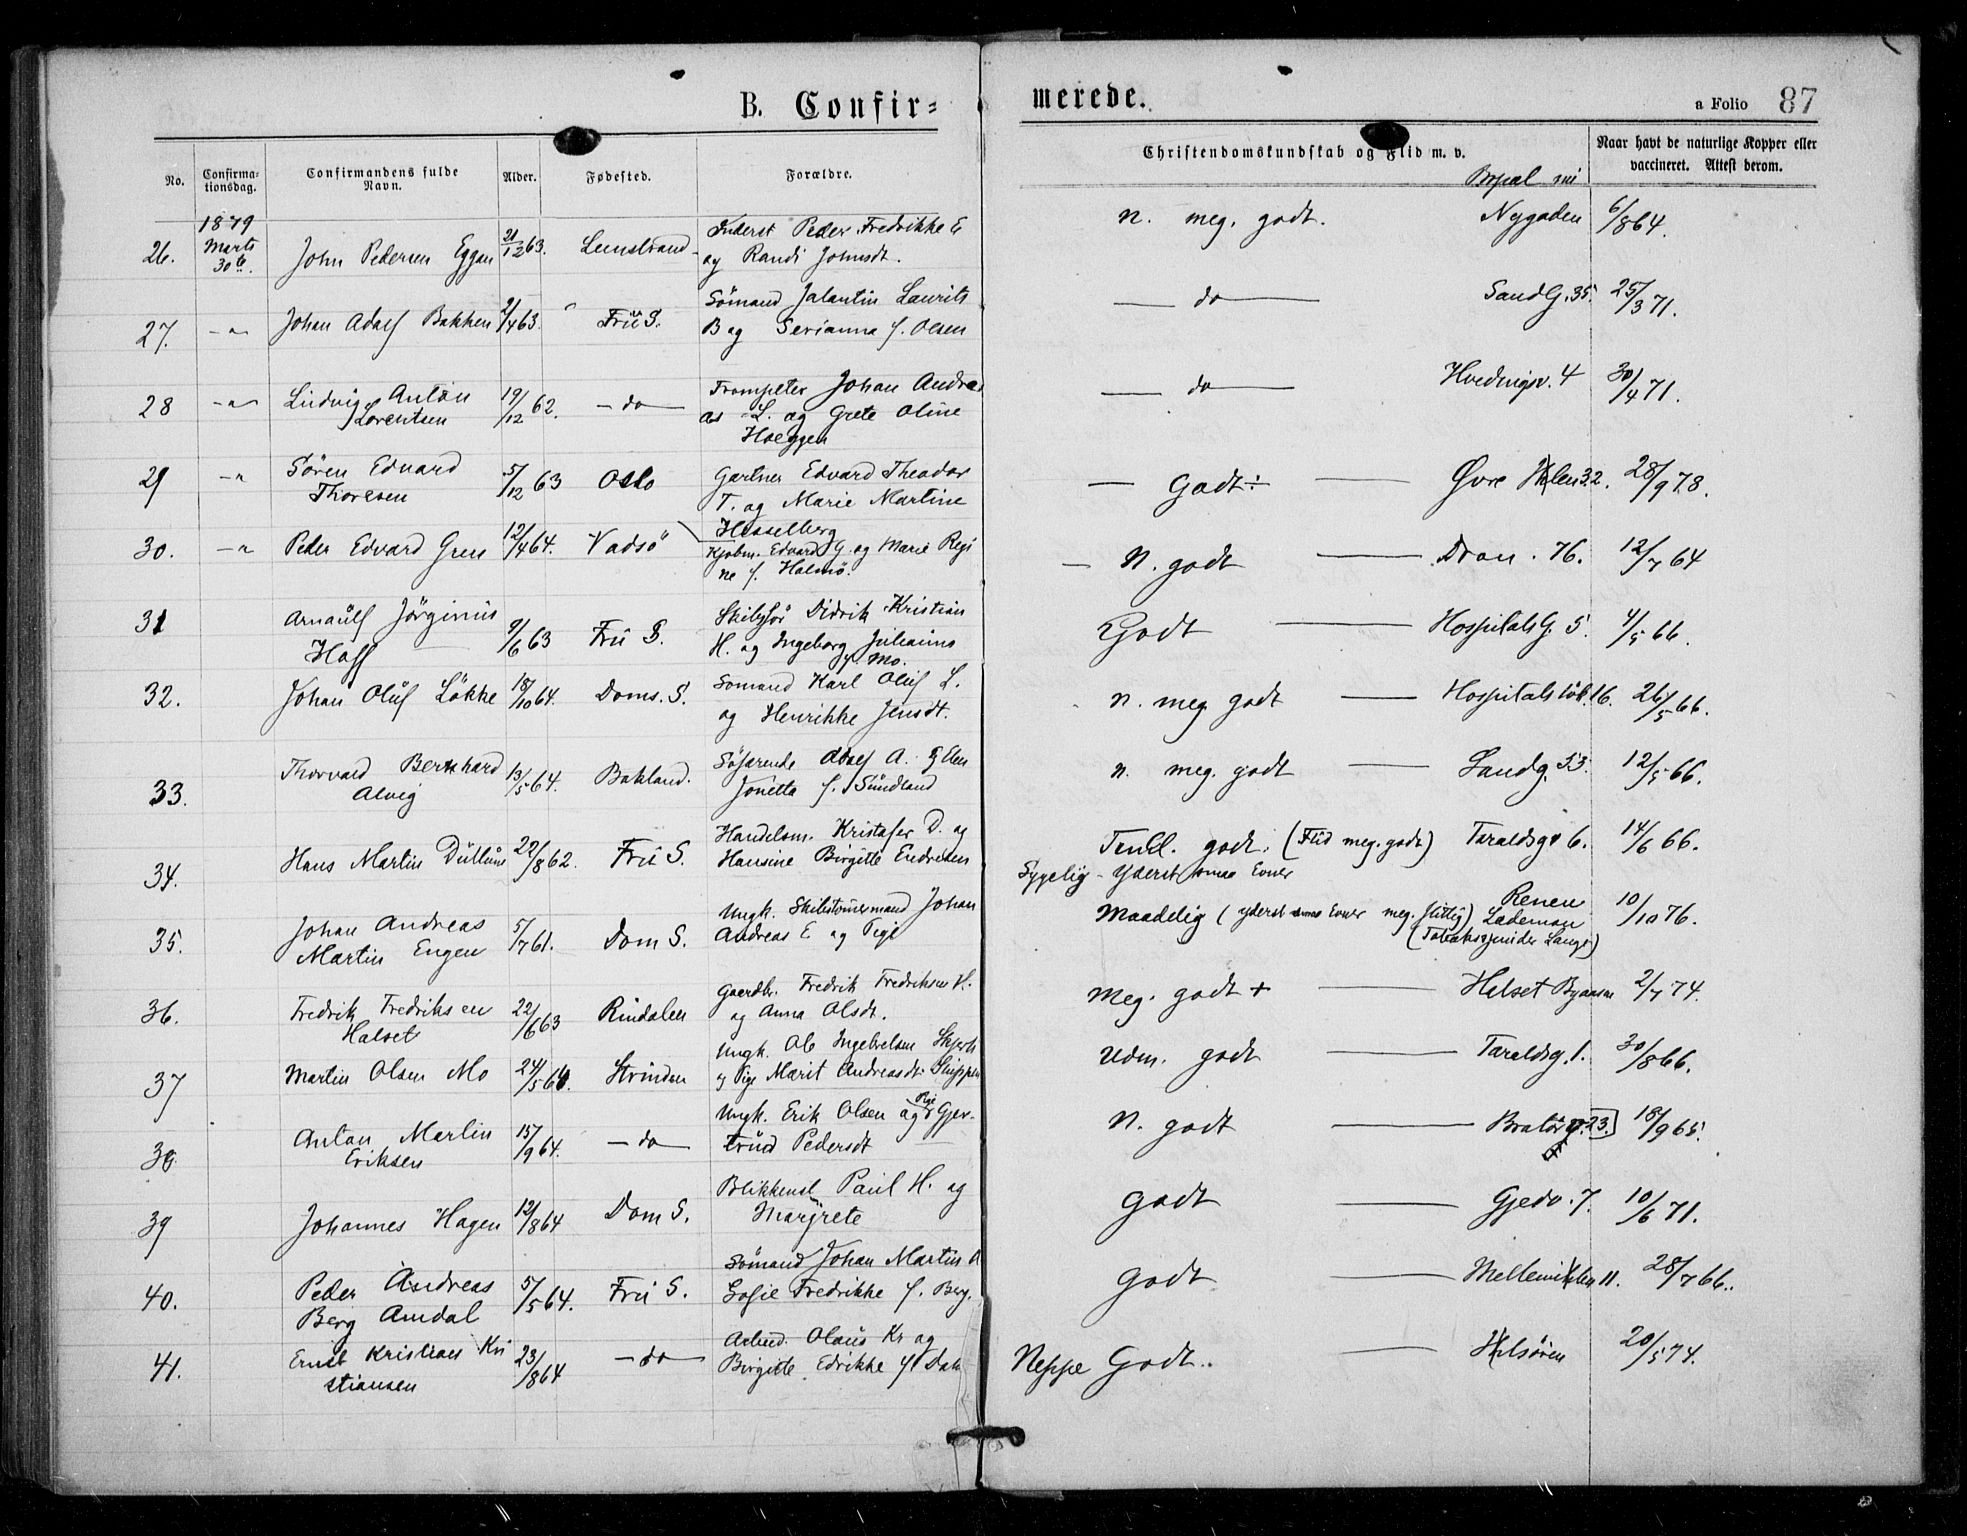 B. Confir=
merede.
a Folio 87
No.
Confirma-
tionsdag.
Confirmandens fulde
Navn.
Alder.
Fødested.
Forældre.
Christendomskundskab og Flid m. v.
Naar havt de naturlige Kopper eller
vaccineret. Attest derom.
1879
26. Marts 30te. John Pedersen Eggan 21/12 63. Inderst Peder Fredrikke E
og Randi Johnsdt.
n. meg. godt. Nygaden 6/8 64.
27. -"- Johan Adolf Bakken /4 63. Frü S. Sömand Laurits
B og Serianna f. Olsen
do SandG. 35. 25/3 71.
28 -"- Ludvig Anton
Lorentsen 19/12 62. - do - Trompeter Johan Andre
as L. og Grete Oline
Hoeggen
do 4 30/4 71.
29 -"- Sören Edvard
Thoresen 5/12 63 Oslo Gartner Edvard Theodor
T. og Marie Martine
Hesselberg
Godt ÷ Øvre 32. 28/9 78.
30. -"- Peder Edvard Gren 12/4 64. Vadsö Kjøbm. Edvard G. og Marie Regi
ne f. Holmö.
N. godt Dron. 76. 12/7 64
31 Arnaülf Jörginius
Hoff 9/6 63 Frü S. Didrik Kristian
H. og Ingeborg
f. Mo.
Godt HospitalsG. 5. 4/5 66.
32. Johan Olüf Lökke 18/10 64. Doms. S. Sömand Karl Olüf L.
og Henrikke Jensdt.
n. meg godt Hospitalslök. 16. 26/5 66.
33. Thorvard Bernhard
Alvig 13/5 64. Bakland. Söfarende Adolf A. & Elen
Jonetta f. Sündland
n. meg. godt Sandg. 53. 12/5 66.
34. Hans Martin 22/8 62. Frü S. Handelsm. Kristofer D. og
Hansine Birgitte Endresen
Temel. godt. (Flid meg. godt) Taraldsg. 6. 14/6 66.
Sygelig - Yderst smaa Evner
35. Johan Andreas
Martin Engen 5/7 61. Dom S. Ungk. Skibstömermand Johan
Andreas E og Pige
Maadelig (yderst smaa Evner meg. flittig) Lademoen 10/10 76.
36. Fredrik Fredriksen
Halset 22/6 63 Rindalen Gaardbr. Fredrik Fredriksen H.
og Anna Olsdt.
Meg. godt + Halset Byaasen 2/7 74.
37 Martin Olsen Mo 24/5 64. Strinden Ungk. Ole Ingebrelsen
og Pige Marit Andreasdt.
Udm. godt Taraldsg. 1. 30/8 66.
38. Anton Martin
Eriksen 15/9 64. - do - Ungk. Erik Olsen og Pige Gjer-
trüd Pedersdt
N. godt Bratör g. 23. 18/9 65.
39 Johannes Hagen 12/8 64 Dom S. Blikkensl. Paul H. og
Margrete
Godt Gjedv. 7. 10/6 71.
40. Peder Andreas
Berg Amdal 5/5 64. Frü S. Sömand Johan Martin A
Sofie Fredrikke f. Berg.
Godt Mellemilen 11. 28/7 66.
41. Ernst Kristian Kri
stiansen 23/8 64 - do - Arbeid. Olaus Kr og
Birgitte Edrikke f. Dahl
Neppe Godt.. Ilsören 20/5 74.